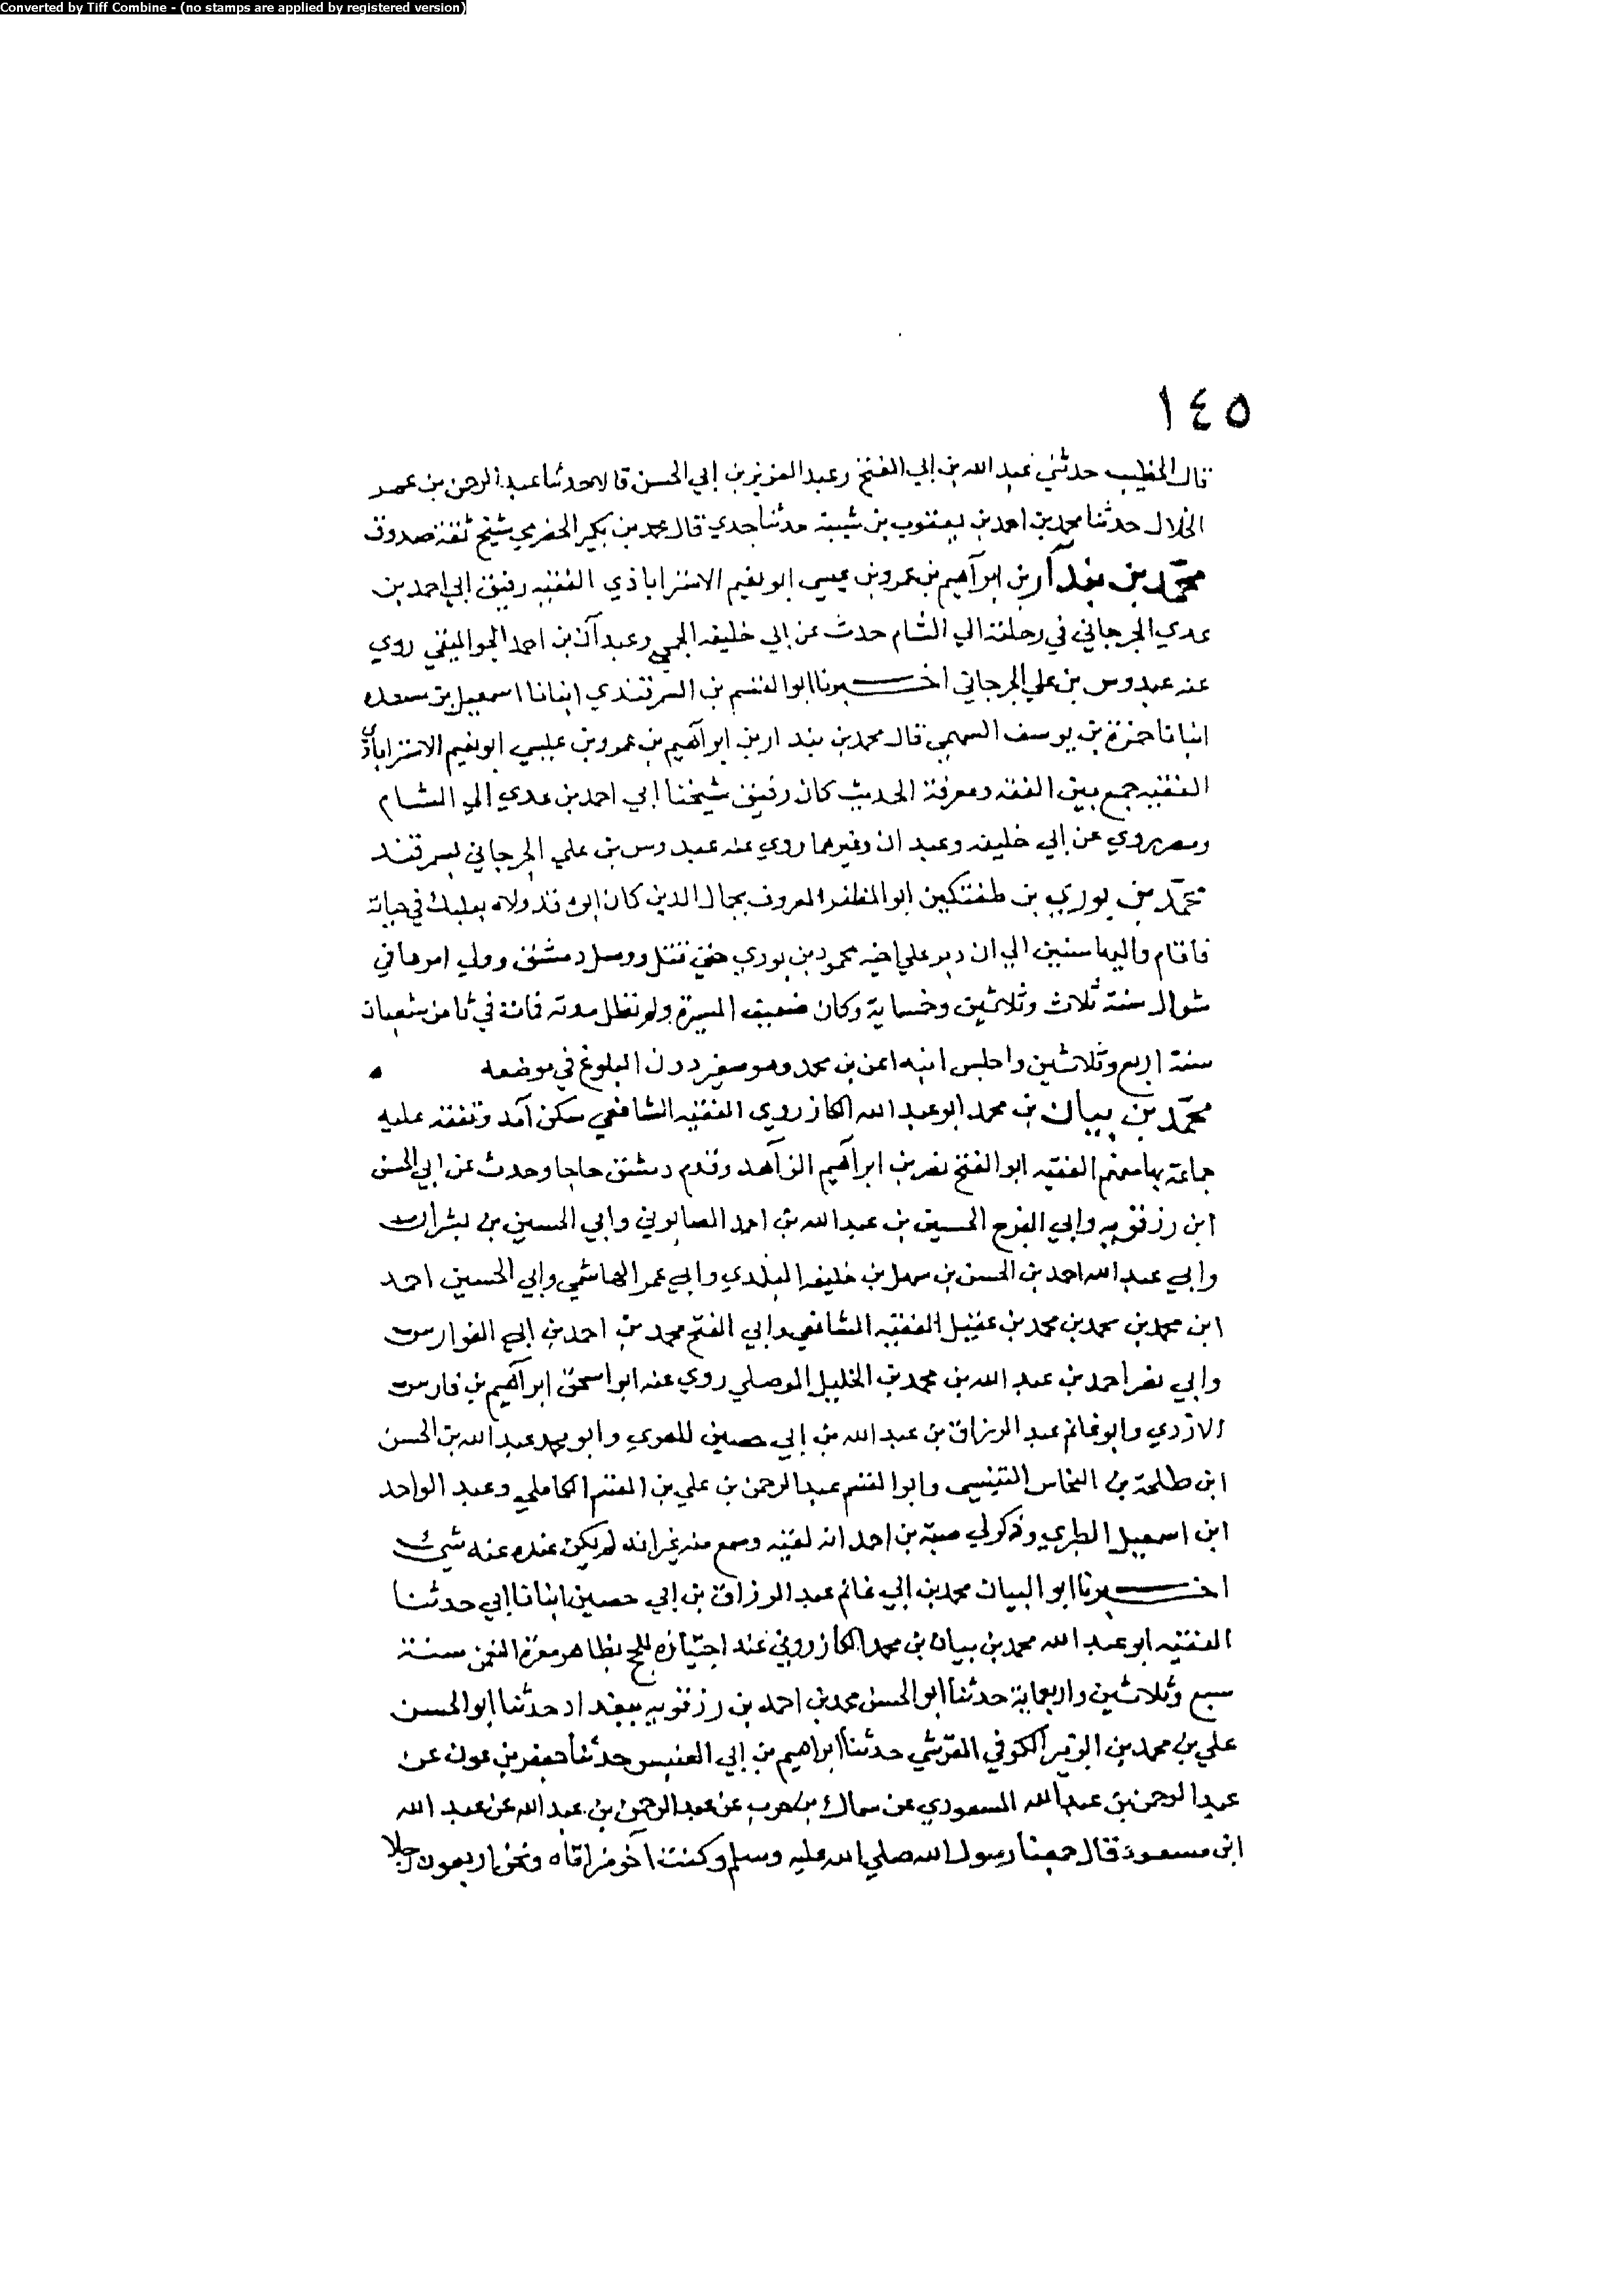 Converted by Tiff Combine - (no stamps are applied by registered version)
١٤٥
قال الخطيب حدثني عبيد الله بن ابي الفتح وعبد العزيز بن ابي الحسن قالا حدثنا عبد الرحمن بن عمر
الخلال حدثنا محمد بن احمد بن يعقوب بن شيبة حدثنا جدي قال محمد بن بكير الحضرمي شيخ ثقة صدوق
محمد بن بندار بن ابراهيم بن عمرو بن عيسي ابو نعيم الاستراباذي الفقيه رفيق ابي احمد بن
عدي الجرجاني في رحلته الي الشام حدث عن ابي خليفه الجمحي وعبدان بن احمد الجواليقي روي
عنه عبدوس بن علي الجرجاني اخبرنا ابو القسم بن السمرقندي انبانا اسمعيل بن سعده
انبانا حمزة بن يوسف السهمي قال محمد بن بندار بن ابراهيم بن عمرو بن عيسي ابو نعيم الاستراباذي
الفقيه جمع بين الفقه ومعرفة الحديث كان رفيق شيخنا ابي احمد بن عدي الي الشام
ومصر يروي عن ابي خليفه وعبدان وغيرهما روي عنه عبدوس بن علي الجرجاني بسمرقند
محمد بن بوري بن طغتكين ابو المظفر المعروف بجمال الدين كان ابوه قد ولاه بعلبك في حياته
فاقام واليها سنين الي ان دبر علي اخيه محمود بن بوري حتي قتل ووصل دمشق وولي امرها في
شوال سنة ثلاث وثلاثين وخمسماية وكان ضعيف السيرة ولم تطل مدته فمات في ثامن شعبان
سنة اربع وثلاثين واجلس ابنه ابق بن محمد وهو صغير دون البلوغ في موضعه
محمد بن بيان بن محمد ابو عبد الله الكازروي الفقيه الشافعي سكن آمد وتفقه عليه
جماعة بها منهم الفقيه ابو الفتح نصر بن ابراهيم الزاهد وقدم دمشق حاجا وحدث عن ابي الحسن
ابن رزقويه وابي الفرج الحسين بن عبد الله بن احمد الصابوني وابي الحسين بن بشران
وابي عبد الله احمد بن الحسن بن سهل بن خليفه البلدي وابي عمر الهاشمي وابي الحسين احمد
ابن محمد بن محمد بن محمد بن عقيل الفقيه الشافعي وابي الفتح محمد بن احمد بن ابي الفوارس
وابي نصر احمد بن عبد الله بن محمد بن الخليل الموصلي روي عنه ابو اسحق ابراهيم بن فارس
الازدي وابو غانم عبد الرزاق بن عبد الله بن ابي حصين المعري وابو محمد عبد الله بن الحسن
ابن طلحة بن النخاس التنيسي وابو القسم عبد الرحمن بن علي بن القسم الكاملي وعبد الواحد
ابن اسمعيل الطبري وذكر لي هبة بن احمد انه لقيه وسمع منه غير انه لم يكن عنده عنه شي
اخبرنا ابو البيان محمد بن ابي غانم عبد الرزاق بن ابي حصين انبانا ابي حدثنا
الفقيه ابو عبد الله محمد بن بيان بن محمد الكازروني عند اجتيازه للحج بظاهر معرة النعمن سنة
سبع وثلاثين واربعماية حدثنا ابو الحسن محمد بن احمد بن رزقويه ببغداد حدثنا ابو الحسن
علي بن محمد بن الزبير الكوفي القرشي حدثنا ابراهيم بن ابي العنبس حدثنا جعفر بن عون عن
عبد الرحمن بن عبد الله المسعودي عن سماك بن حرب عن عبد الرحمن بن عبد الله عن عبد الله
ابن مسعود قال جمعنا رسول الله صلي الله عليه وسلم وكنت آخر من اتاه ونحن اربعون رجلا